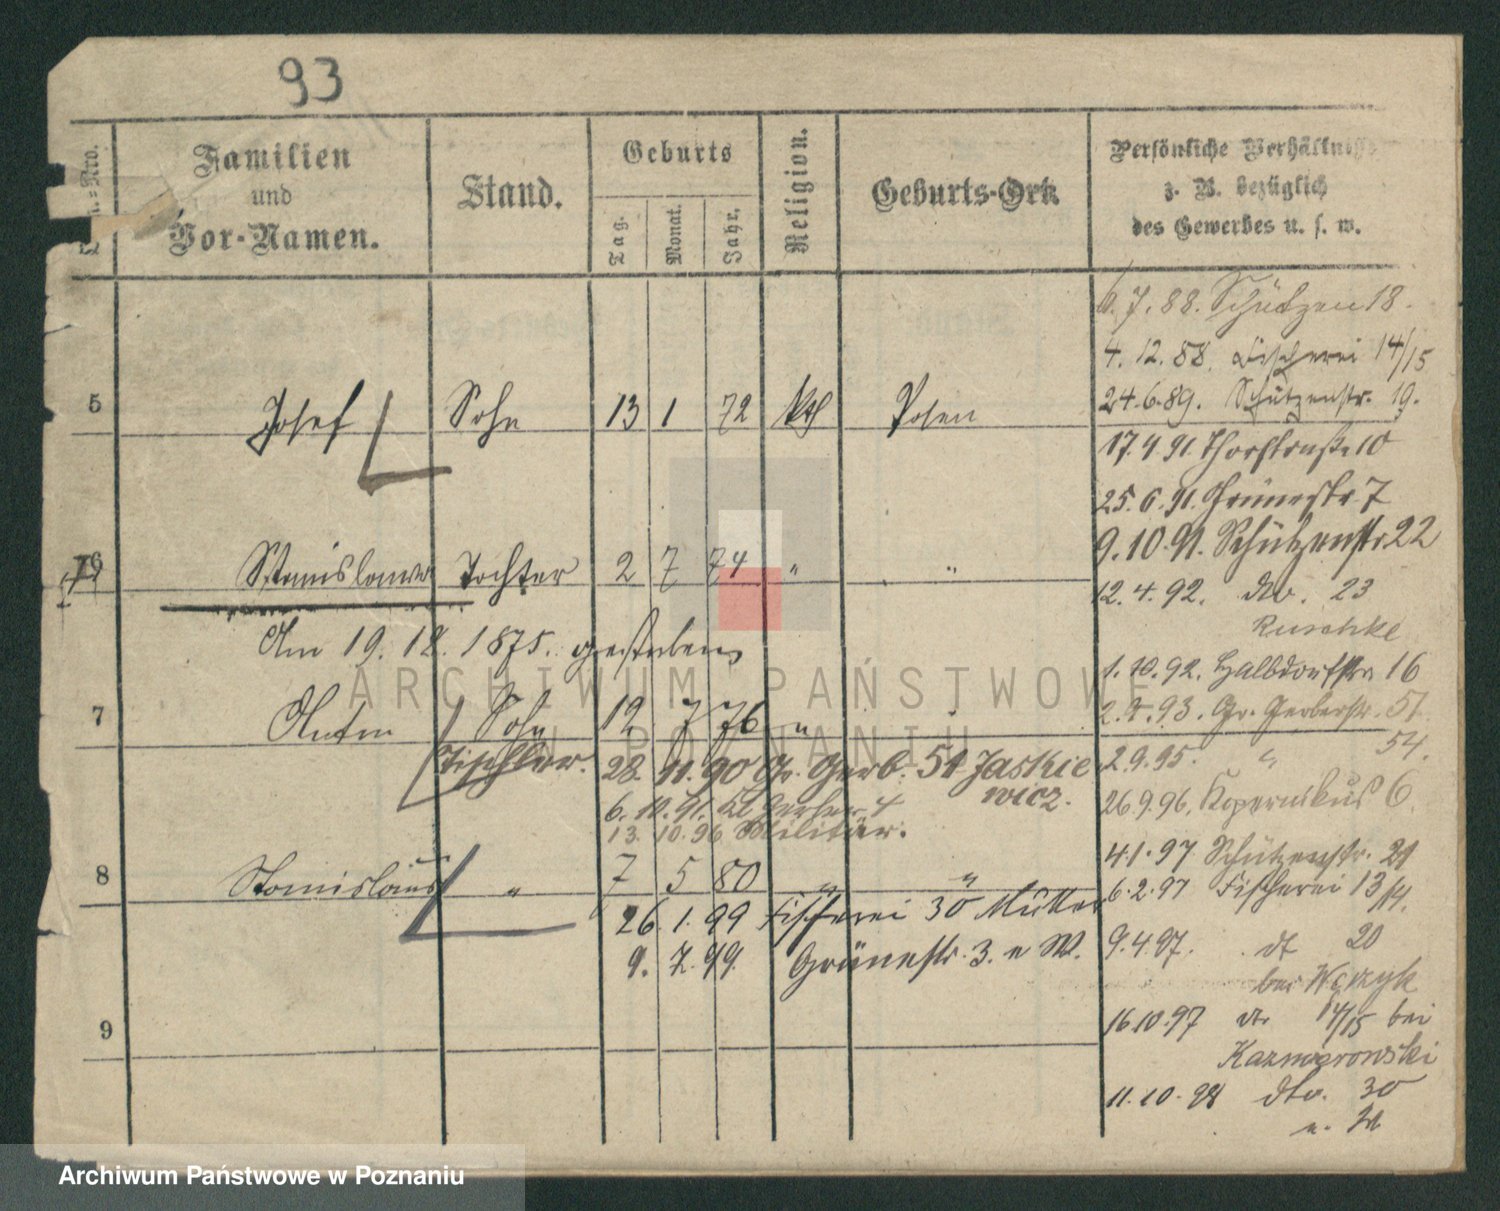 93
Familien
und
Vor-Namen.
Stand.
Geburts
Tag.
Monat.
Jahr.
Religion.
Geburts-Ort.
Persönliche Verhältniss
z. B. bezüglich
des Gewerbes u. s. w.
6.7.88. Schützen 18.
4.12.88. Fischerei 14/15
24.6.89. Schützenstr. 19.
5 Josef Sohn 13 1 72 kth Posen
17.4.91. Thorstraße 10
25.6.91. Grünestr 7
9.10.91. Schützenstr 22
6 Stanislawa Tochter 2 7 74 " "
12.4.92. dto. 23
Ruschke
Am 19.12.1875. gestorben
1.10.92. Halbdorfstr 16
7 Anton Sohn 12 7 76 "
2.4.93. Gr. Gerberstr. 51
Tischler. 28.11.90 Gr. Gerb. 51 Jaskie
wicz.
2.9.95. " 54.
6.10.91. Kl. Gerber 4
26.9.96. Kopernikus 6.
13.10.96 Militär.
8 Stanislaus " 7 5 80 " "
4.1.97 Schützenstr. 21
6.2.97 Fischerei 13/14.
26.1.99 Fischerei 30 Mutter
9.7.99. Grünestr. 3. e W.
9.4.97. dt 20
bei
16.10.97 dto 14/15 bei
Kazmierowski
9
11.10.98 dto. 30
ARCHIWUM PAŃSTWOWE
W POZNANIU
Archiwum Państwowe w Poznaniu